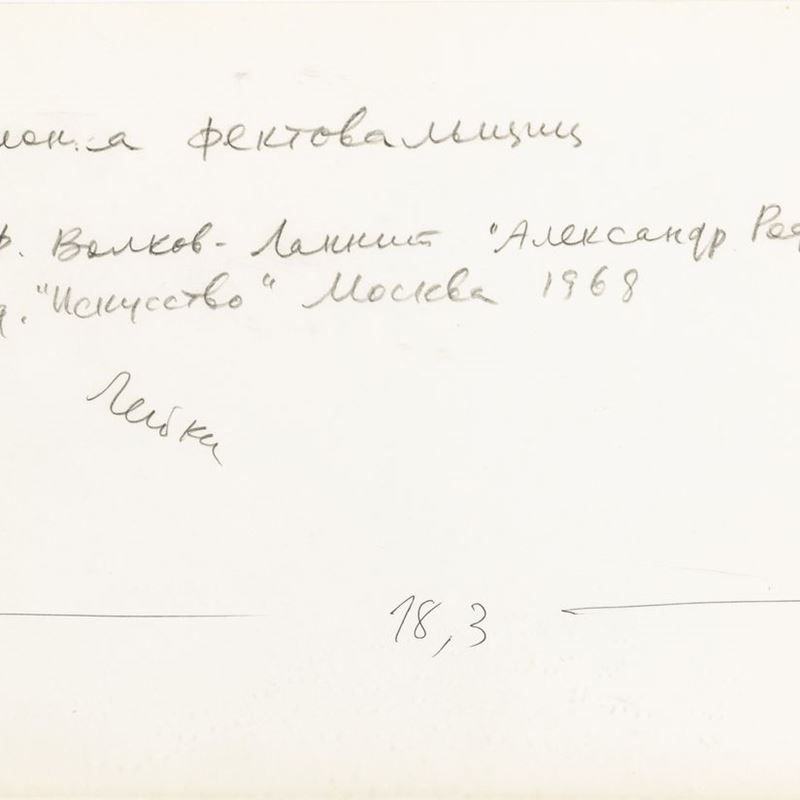 фектовальщиц
Ф. Волков-Ланнит "Александр Род
"Искусство" Москва 1968
Лейки
18,3